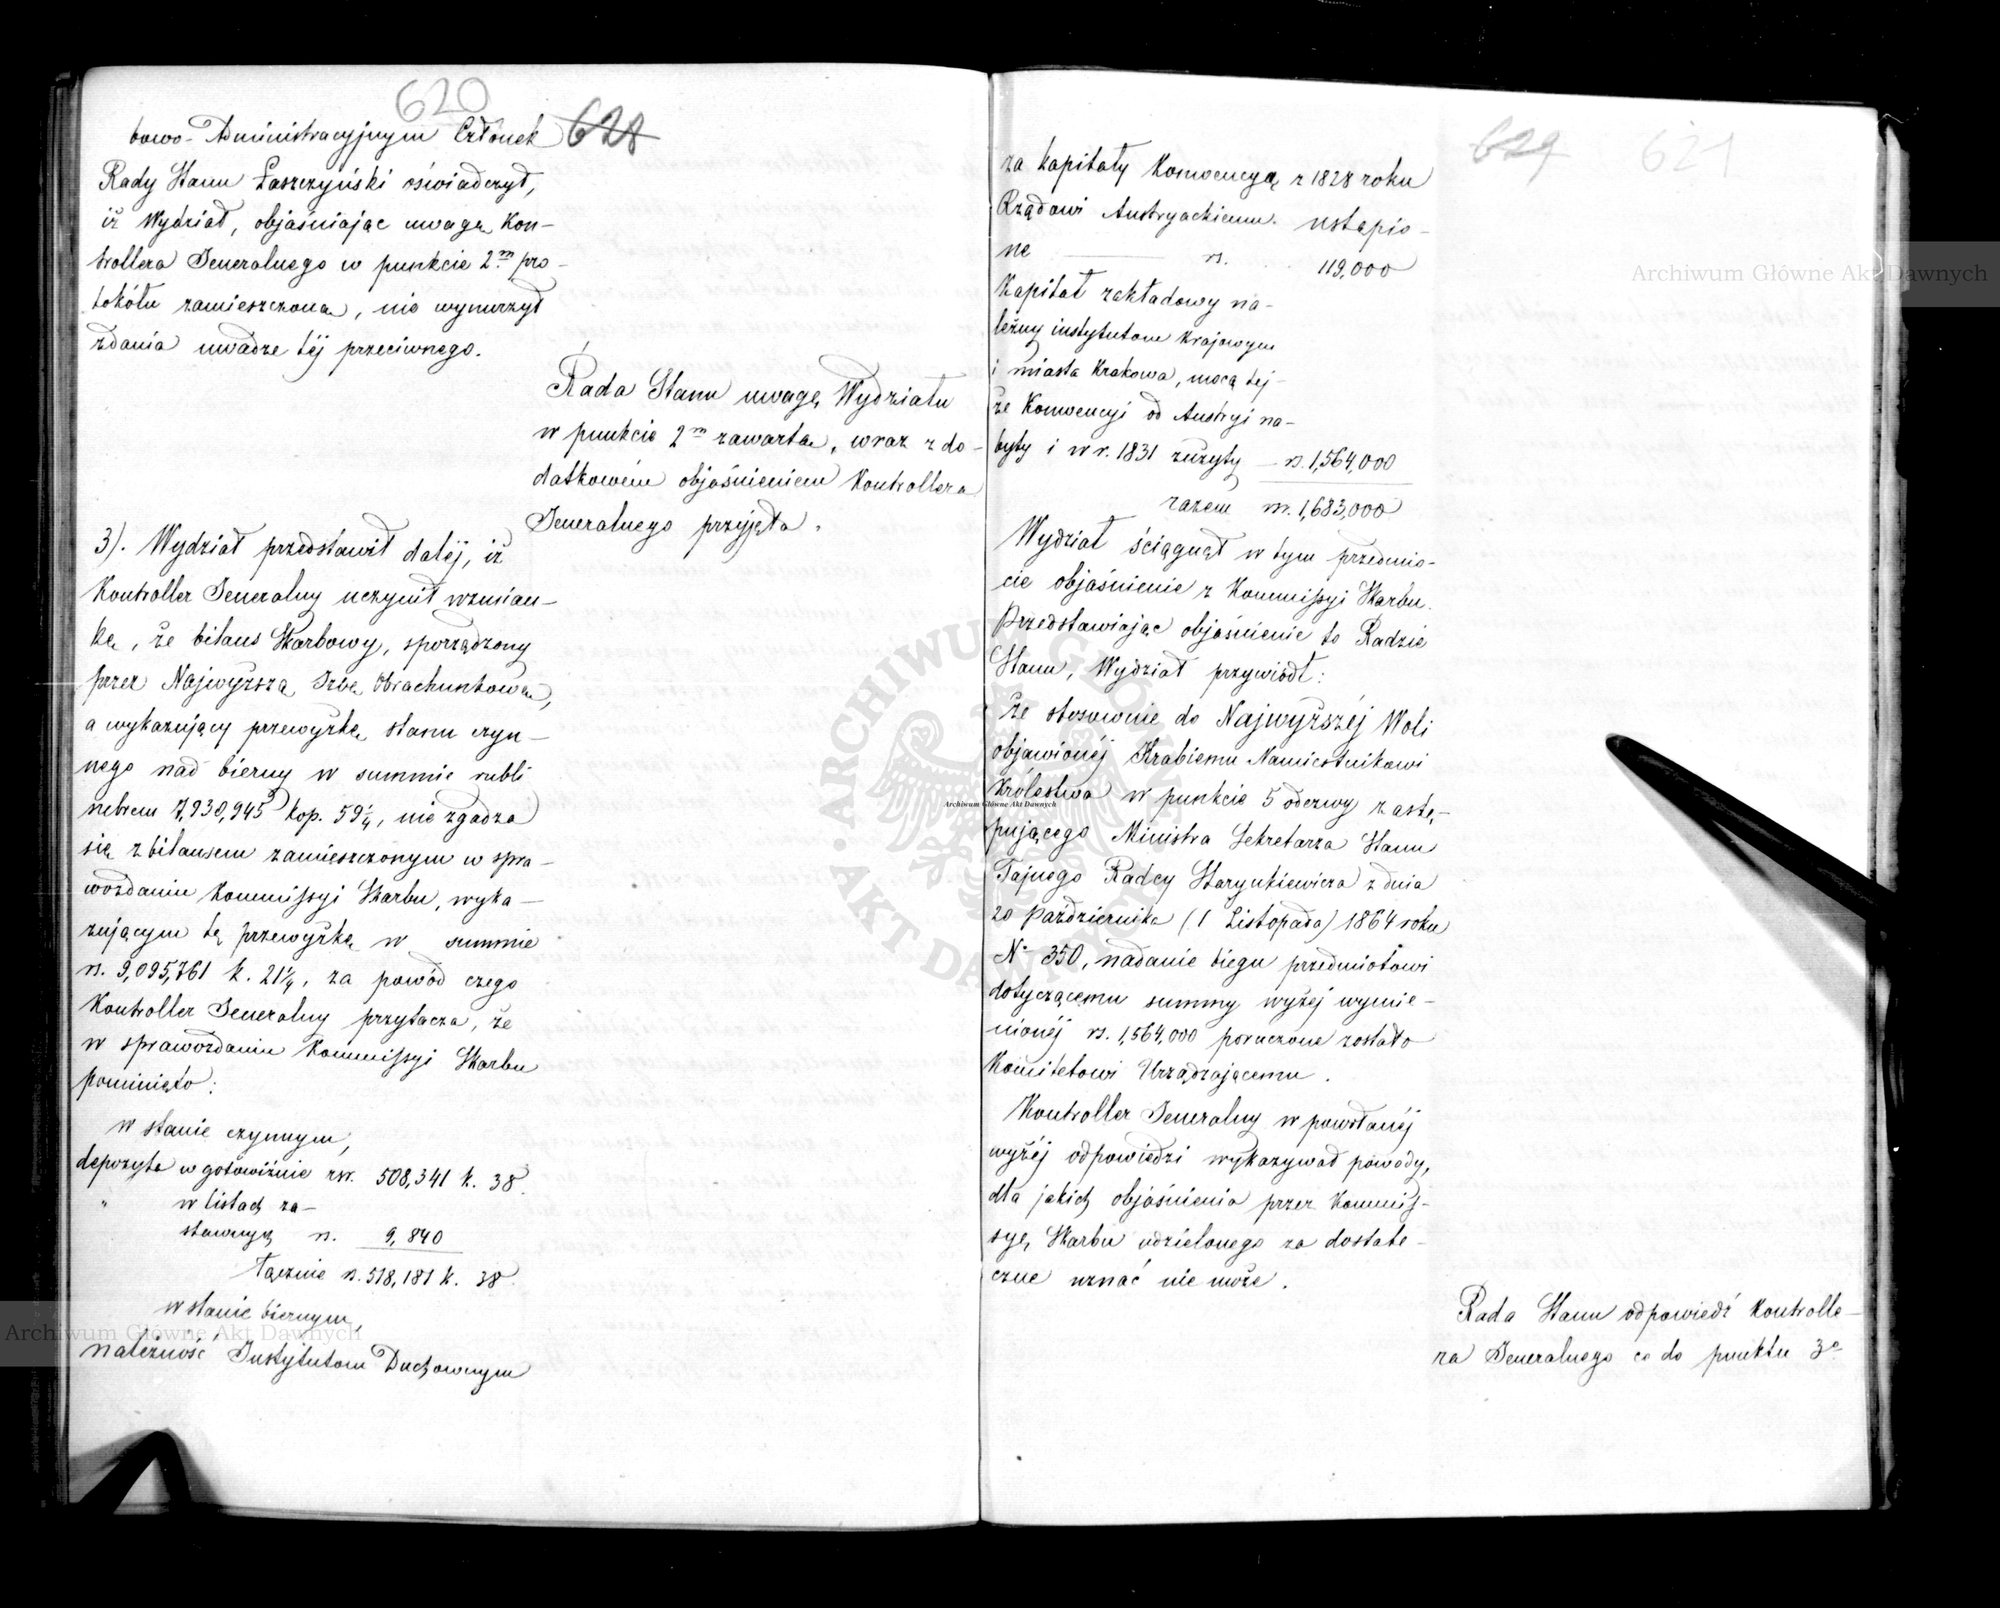 620
628
bowo-Administracyjnym Członek
Rady Stanu Łaszczyński oświadczył,
iż Wydział, objaśniając uwagę Kon-
trollera Jeneralnego w punkcie 2.m pro-
tokółu zamieszczoną, nie wynurzył
zdania uwadze téj przeciwnego.
Rada Stanu uwagę Wydziału
w punkcie 2m zawartą, wraz z do-
datkowém objaśnieniem Kontrollera
Jeneralnego przyjęła.
3). Wydział przedstawił daléj, iż
Kontroller Jeneralny uczynił wzmian-
kę, że bilans Skarbowy, sporządzony
przez Najwyższą Izbę Obrachunkową,
a wykazujący przewyżkę stanu czyn-
nego nad bierny w summie rubli
srebrem 7,930,945 kop. 59¼, nie zgadza
się z bilansem zamieszczonym w spra-
wozdaniu Kommissyi Skarbu, wyka-
zującym tę przewyżkę w summie
rs. 9,095,761 k. 21¼, za powód czego
Kontroller Jeneralny przytacza, że
w sprawozdaniu Kommissyi Skarbu
pominięto:
w stanie czynnym,
depozyta w gotowiźnie rsr. 508,341 k. 38.
" w listach za-
stawnych rs. 9,840
łącznie rs. 518,181 k. 38.
w stanie biernym,
należność Instytutom Duchownym
629
621
za kapitały Konwencyą z 1828 roku
Rządowi Austryackiemu ustąpio-
ne rs. 119,000
Kapitał zakładowy na-
leżny instytutom krajowym
i miasta Krakowa, mocą tej-
że Konwencyi od Austryi na-
byty i w r. 1831 zużyty — rs. 1,564,000
razem rs. 1,683,000
Wydział ściągnął w tym przedmio-
cie objaśnienie z Kommissyi Skarbu.
Przedstawiając objaśnienie to Radzie
Stanu, Wydział przywiódł:
Że stosownie do Najwyższéj Woli
objawionéj Hrabiemu Namiestnikowi
Królestwa w punkcie 5 odezwy zastę-
pującego Ministra Sekretarza Stanu
Tajnego Radcy Starynkiewicza z dnia
20 Października (1 Listopada) 1864 roku
No 350, nadanie biegu przedmiotowi
dotyczącemu summy wyżéj wymie-
nionéj rs. 1,564,000 poruczone zostało
Komitetowi Urządzającemu.
Kontroller Jeneralny w powołanéj
wyżéj odpowiedzi wykazywał powody,
dla jakich objaśnienia przez Kommis-
syę Skarbu udzielonego za dostate-
czne uznać nie może.
Rada Stanu odpowiedź Kontrolle-
ra Jeneralnego co do punktu 3o
Archiwum Główne Akt Dawnych
Archiwum Główne Akt Dawnych
Archiwum Główne Akt Dawnych